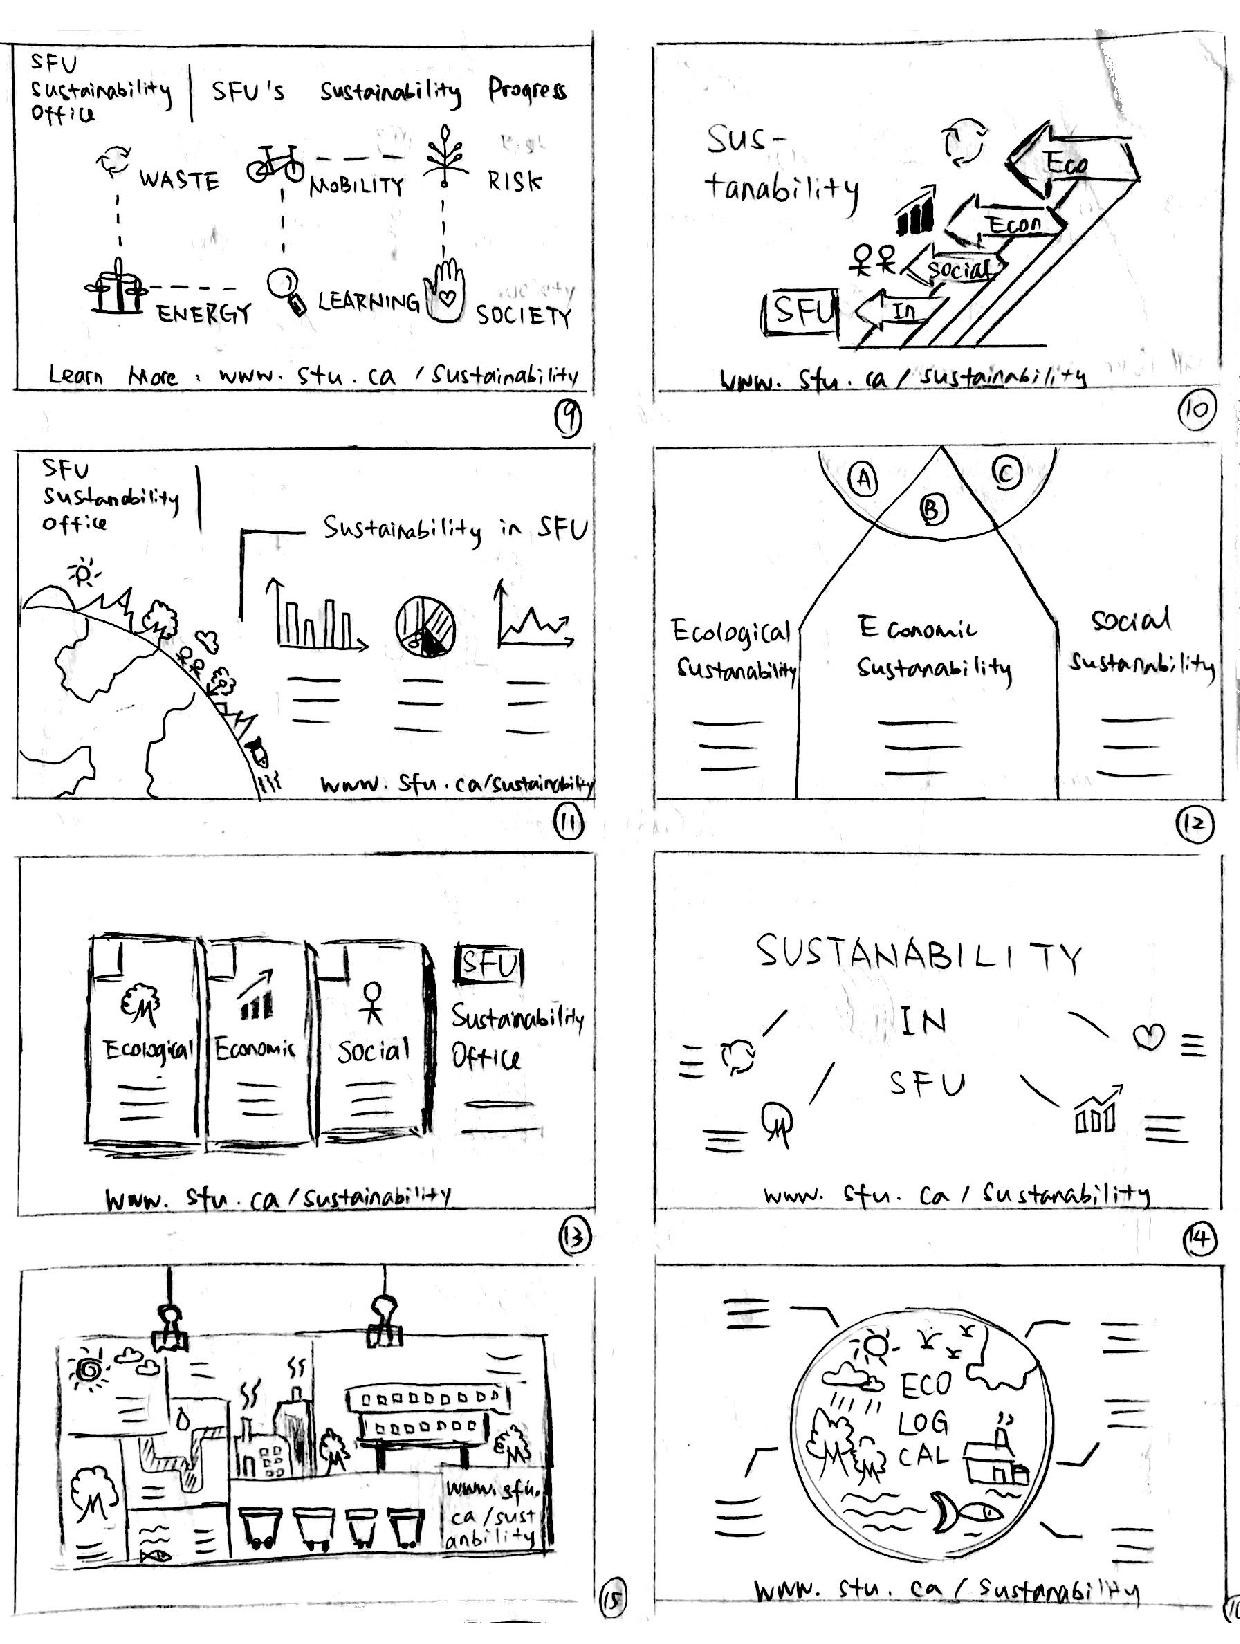 SFU
Sustainability
Office
SFU's Sustainability Progress
WASTE
MOBILITY
RISK
ENERGY
LEARNING
SOCIETY
Learn More : www. sfu. ca / Sustainability
9
Sus-
tanability
Eco
Econ
Social
In
SFU
www. sfu. ca / sustainability
10
SFU
Sustanability
Office
Sustainability in SFU
www. sfu. ca/sustainability
11
A
B
C
Ecological
Sustanability
Economic
Sustanability
Social
Sustanability
12
Ecological
Economic
Social
SFU
Sustainability
Office
www. sfu. ca / sustainability
13
SUSTANABILITY
IN
SFU
www. sfu. ca / Sustanability
14
www. sfu.
ca / sust
anbility
15
ECO
LOG
CAL
www. sfu. ca / Sustanability